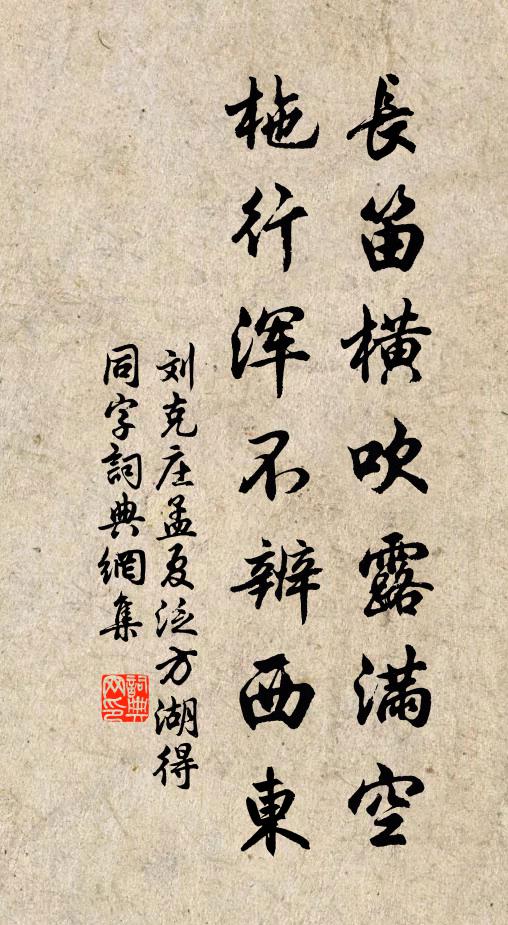 長笛橫吹露滿空
拖行浑不辨西東
刘克庄孟夏泛方湖得
同字詞典網集
詞典
网印